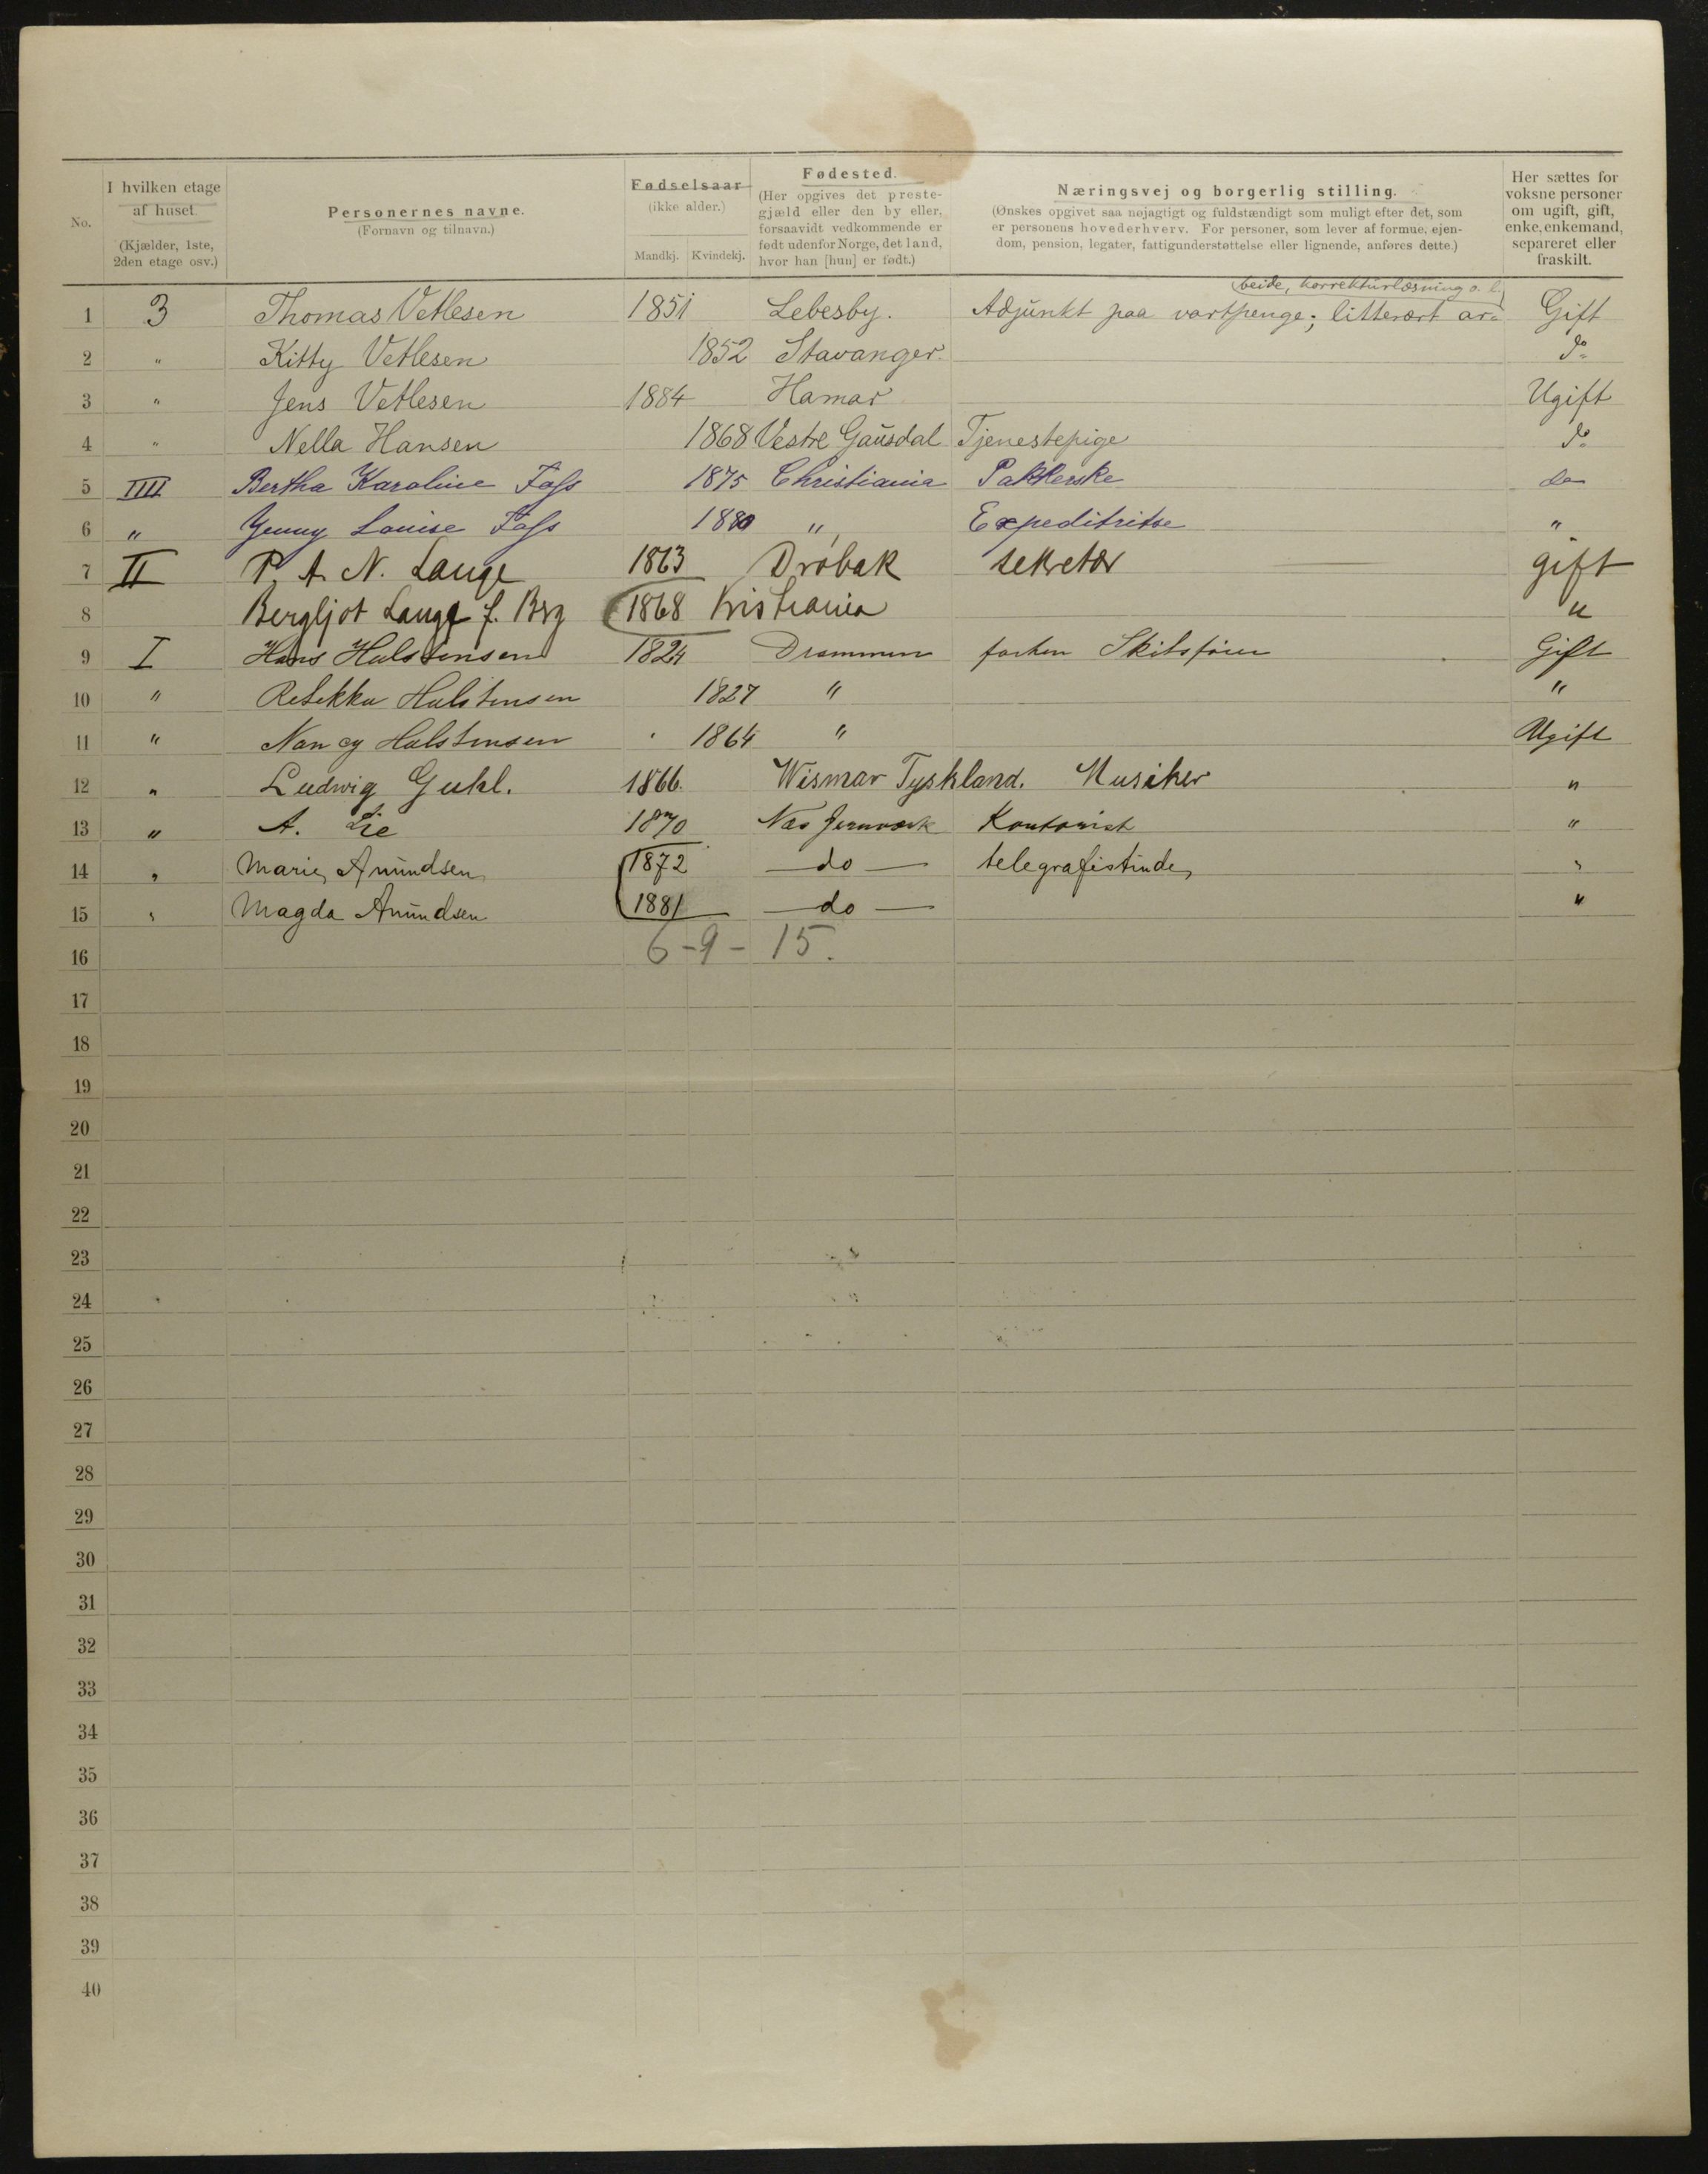 No.
I hvilken etage af huset
(Kjælder, 1ste, 2den etage osv.)
Personernes navne.
(Fornavn og tilnavn.)
Fødselsaar
(ikke alder.)
Mandkj. Kvindekj.
Fødested.
(Her opgives det preste-
gjæld eller den by eller,
forsaavidt vedkommende er
født udenfor Norge, det land,
hvor han [hun] er født.)
Næringsvej og borgerlig stilling.
(Ønskes opgivet saa nøjagtigt og fuldstændigt som muligt efter det, som
er personens hovederhverv. For personer, som lever af formue, ejen-
dom, pension, legater, fattigunderstøttelse eller lignende, anføres dette.)
Her sættes for
voksne personer
om ugift, gift,
enke, enkemand,
separeret eller
fraskilt.
beide, korrekturlæsning o. l.
1 3 Thomas Vetlesen 1851 Lebesby. Adjunkt paa vartpenge; litterært ar= Gift
2 " Kitty Vetlesen 1852 Stavanger. do
3 " Jens Vetlesen 1884 Hamar Ugift
4 " Nella Hansen 1868 Vestre Gausdal Tjenestepige do
5 IIII Bertha Karoline Foss 1875 Christiania Pakkerske do
6 " Jenny Louise Foss 1880 " Expeditritse "
7 II P. A. N. Lange 1863 Drøbak sekretær gift
8 Bergljot Lange f. Berg 1868 Kristiania "
9 I Hans Halstensen 1824 Drammen forhen Skibsfører Gift
10 " Rebekka Halstensen 1827 " "
11 " Nancy Halstensen 1864 " Ugift
12 " Ludwig Guhl. 1866. Wismar Tyskland. Musiker "
13 " A. Lie 1870 Næs Jernværk Kontorist "
14 " Marie Amundsen 1872 do telegrafistinde "
15 " Magda Amundsen 1881 do "
16 6 - 9 - 15.
17
18
19
20
21
22
23
24
25
26
27
28
29
30
31
32
33
34
35
36
37
38
39
40